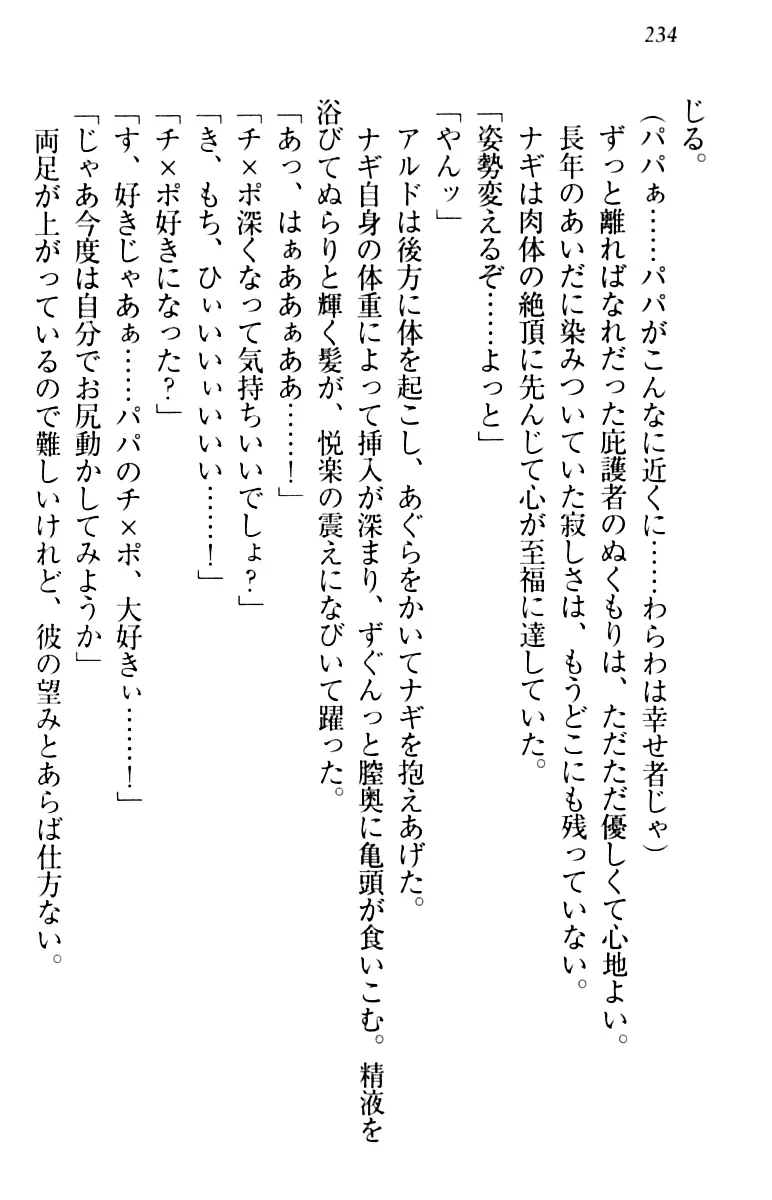 234
じる。
（パパぁ……パパがこんなに近くに……わらわは幸せ者じゃ）
ずっと離ればなれだった庇護者のぬくもりは、ただただ優しくて心地よい。
長年のあいだに染みついていた寂しさは、もうどこにも残っていない。
ナギは肉体の絶頂に先んじて心が至福に達していた。
「姿勢変えるぞ……よっと」
「やんッ」
アルドは後方に体を起こし、あぐらをかいてナギを抱えあげた。
ナギ自身の体重によって挿入が深まり、ずぐんっと膣奥に亀頭が食いこむ。精液を
浴びてぬらりと輝く髪が、悦楽の震えになびいて躍った。
「あっ、はぁああぁああ……！」
「チ×ポ深くなって気持ちいいでしょ？」
「き、もち、ひぃいいぃいいい……！」
「チ×ポ好きになった？」
「す、好きじゃあぁ……パパのチ×ポ、大好きぃ……！」
「じゃあ今度は自分でお尻動かしてみようか」
両足が上がっているので難しいけれど、彼の望みとあらば仕方ない。